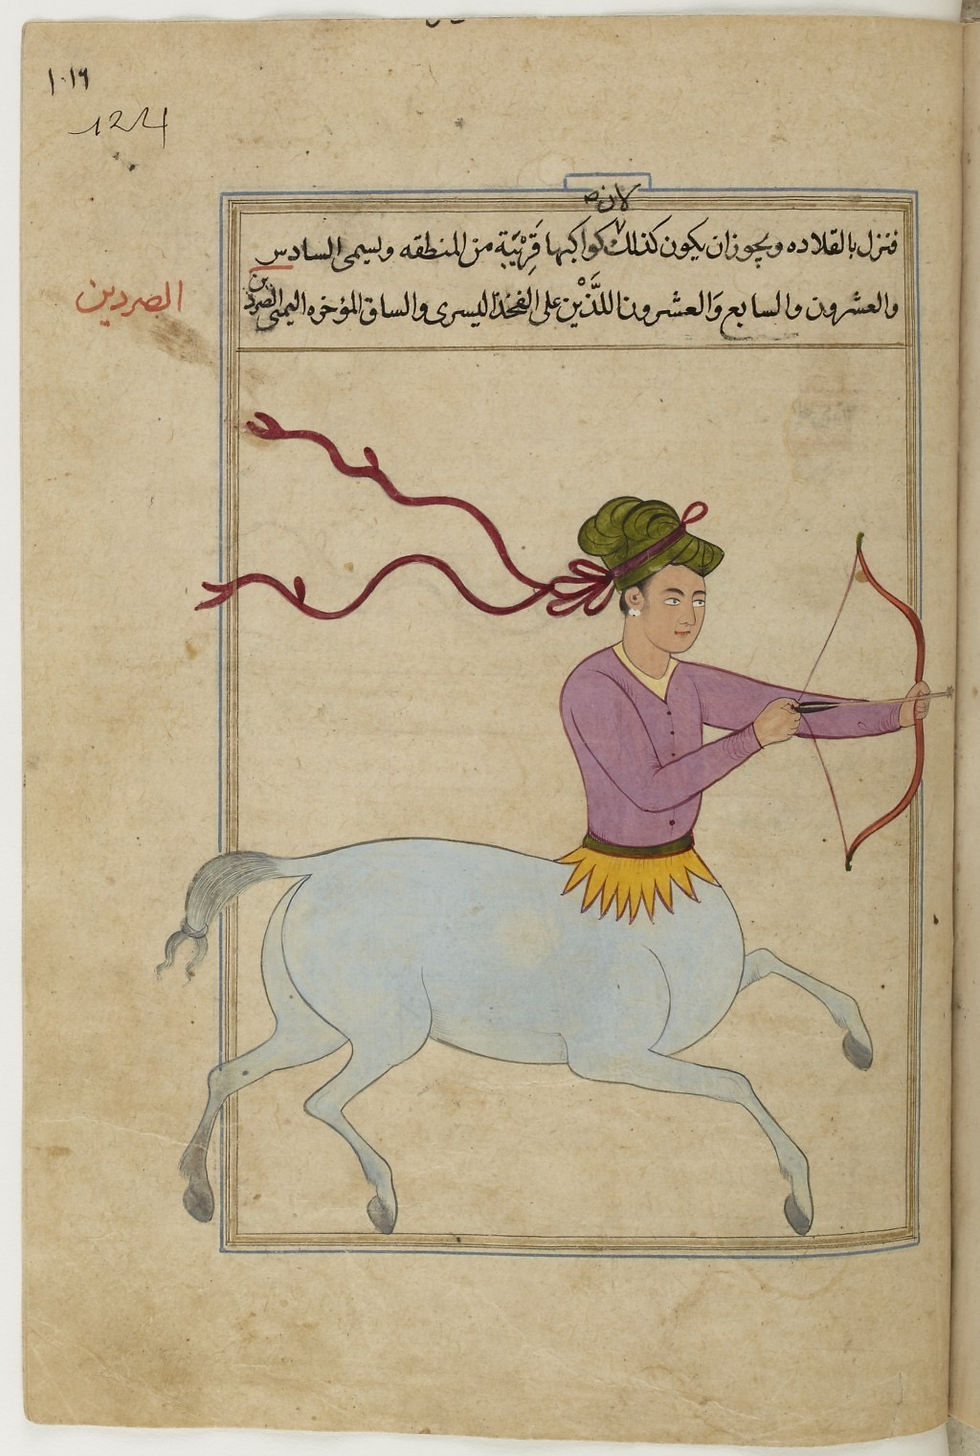 ١٠١٩
124
لانه
فتزل بالقلاده ويجوز ان يكون كذلك لا كواكبها قَرِيْبَة من المنطقه ويسمى السادس
والعشرون والسابع وَالعشرون اللذَّيْن على الفخذ اليسرى والساق المؤخره اليمنى الصردين
الصردين